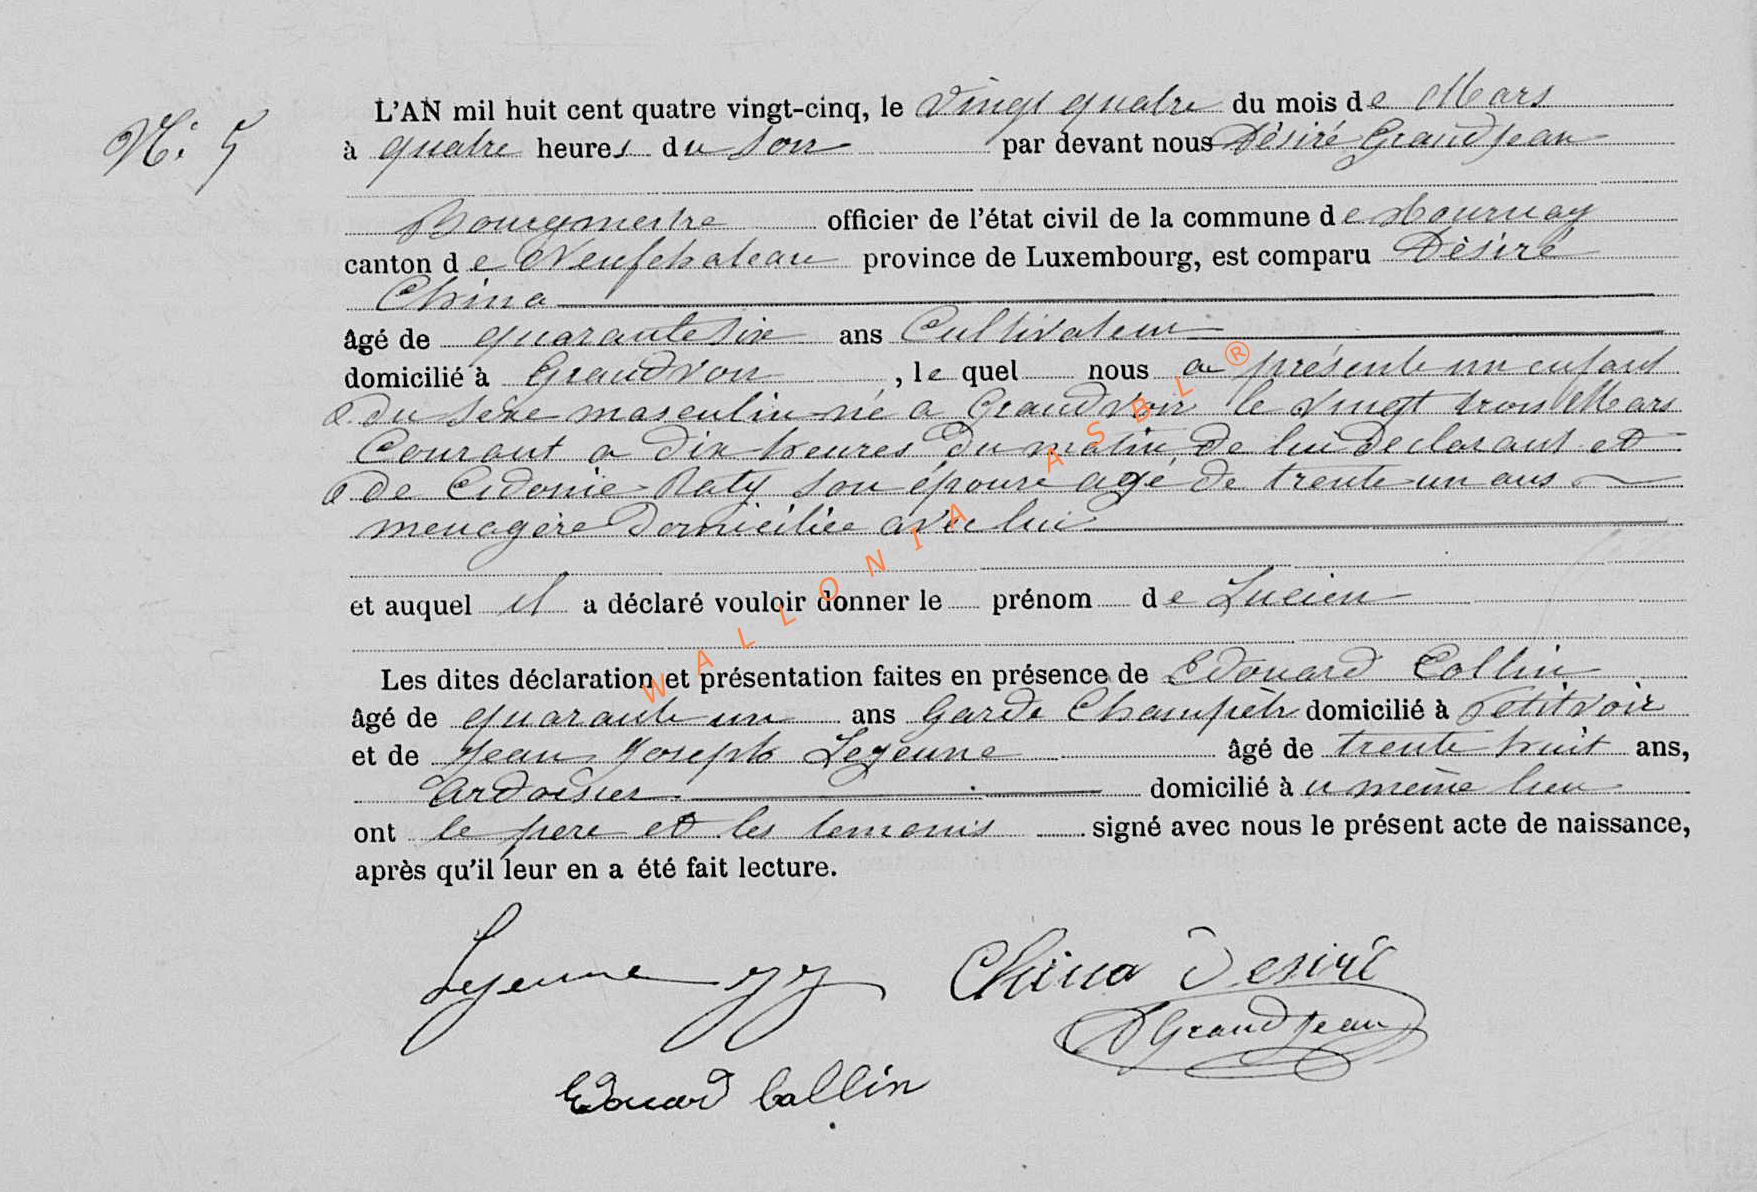 N: 5
L'AN mil huit cent quatre vingt-cinq, le Vingt quatre du mois de Mars
à quatre heures du soir par devant nous Désiré Grandjean
Bourgmestre officier de l'état civil de la commune de Tournay
canton de Neufchateau province de Luxembourg, est comparu Désiré
China
âgé de quarante six ans Cultivateur
domicilié à Grandvoir, le quel nous a présenté un enfant
du sexe masculin né a Grandvoir le vingt trois Mars
Courant a dix heures du matin de lui déclarant et
de Cidonie Raty son épouse agé de trente un ans
menagère domiciliée avec lui
et auquel il a déclaré vouloir donner le prénom de Lucien
Les dites déclaration et présentation faites en présence de Edouard Collin
âgé de quarante un ans Garde Champêtr domicilié à Petitvoir
et de Jean Joseph Lejeune âgé de trente huit ans,
Ardoisier domicilié à u même lieu
ont le pere et les temoins signé avec nous le présent acte de naissance,
après qu'il leur en a été fait lecture.
Lejeune JJ China Desiré
DGrandjean
Edouard Collin
WALLONIA ASBL ®